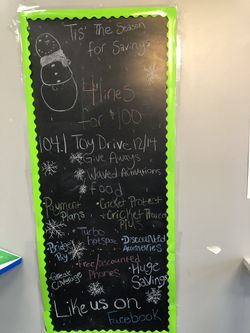 Tis' The Season
for Savings
4 lines
for $100
104.1 Toy Drive 12/14
Give Aways
Waved Activations
Food
Payment Plans
Cricket Protect
Cricket Protect Plus
Bridge Pay
Turbo hotspot
Discounted Accessories
Great Coverage
Free/discounted Phones
Huge Savings
Like us on
Facebook